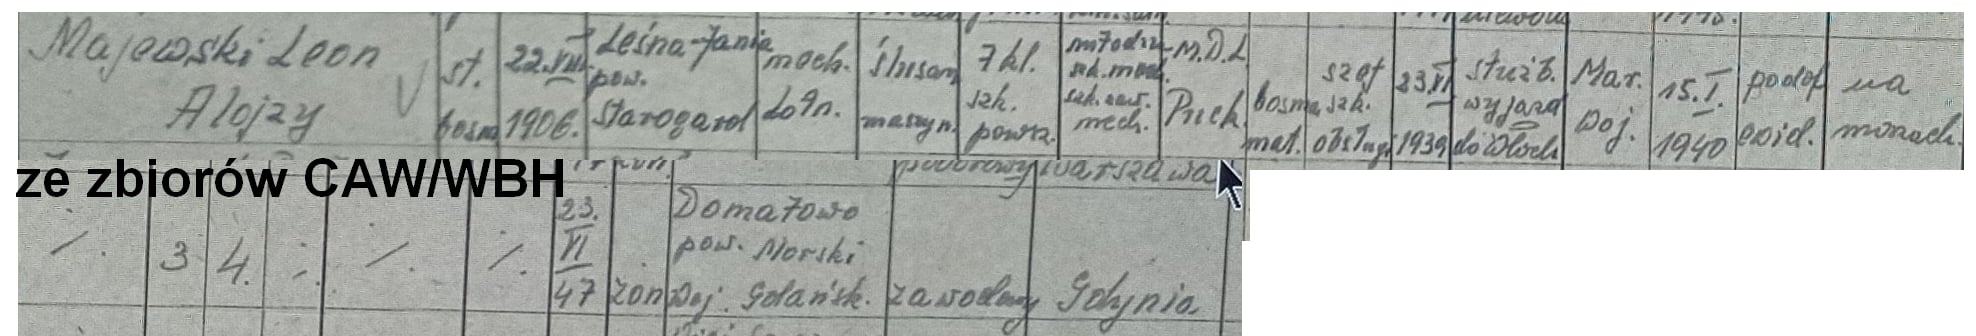 Majewski Leon
Alojzy
st.
bosm
22.VII.
1906.
Leśna-Jania
pow.
Starogard
moch.
ślusarz
maszyn.
7 kl.
szk.
powsz.
szk. zaw.
mech.
M.D.L.
Puck
bosma
mat.
szef
szk.
obsługi
23.VI
1939
służb.
wyjazd
do Włoch
Mar.
Woj.
15.I.
1940
podof
ewid.
na
monach.
podborowy warszawa
ze zbiorów CAW/WBH
/.
3
4.
/.
/.
/.
23.
VI
47
żon
Domatowo
pow. Morski
Woj. Gdańsk.
zawodowy
Gdynia